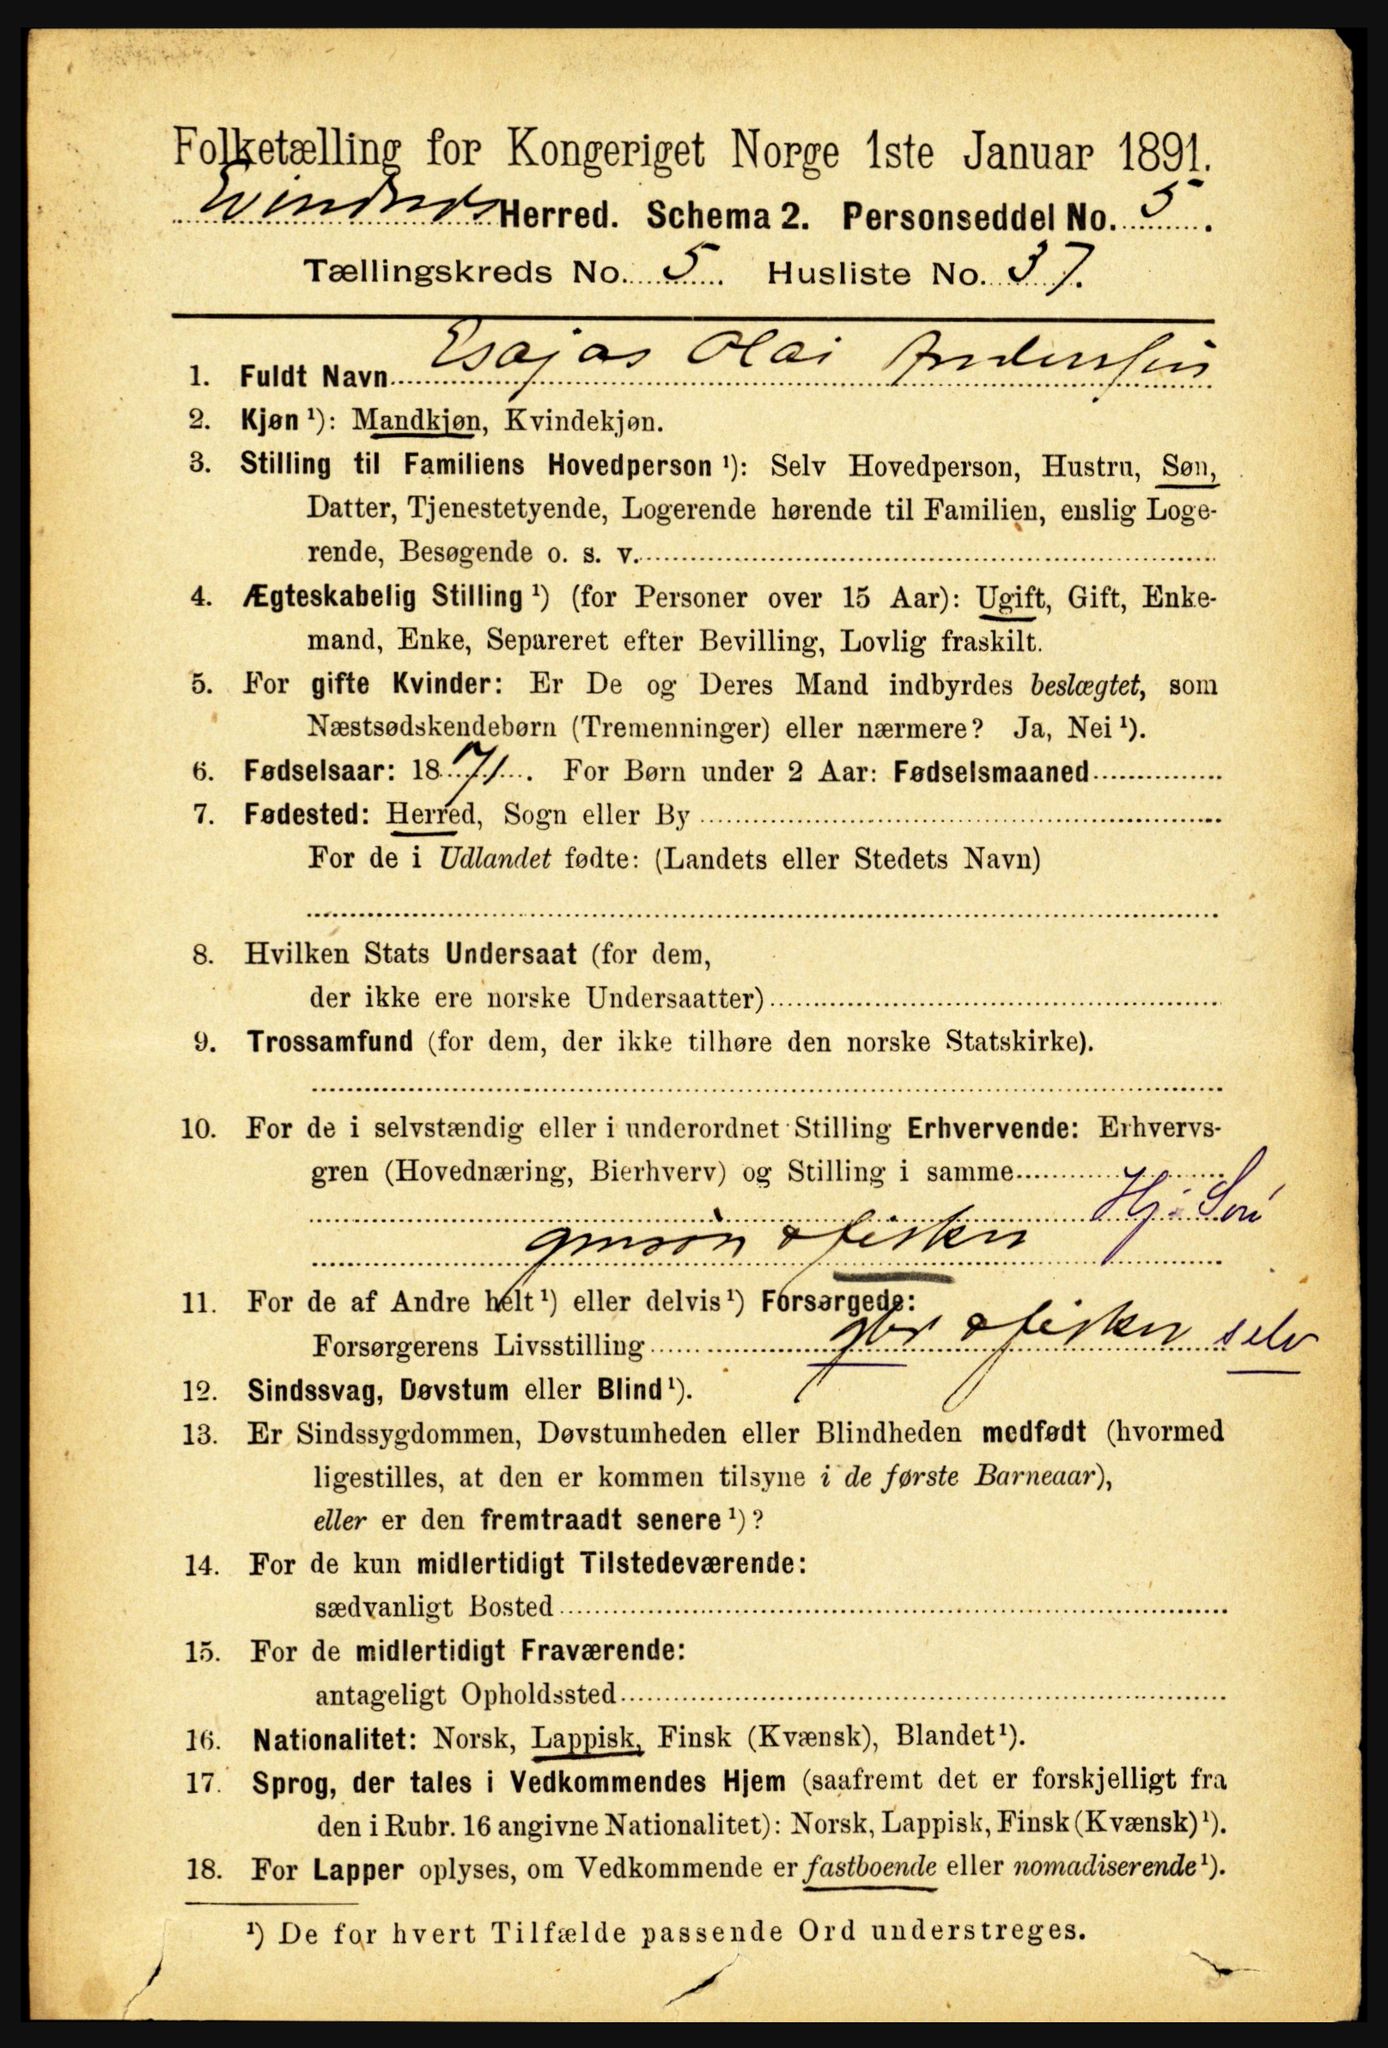 Folketælling for Kongeriget Norge 1ste Januar 1891.
Evindnes Herred. Schema 2. Personseddel No. 5.
Tællingskreds No. 5. Husliste No. 37.
1. Fuldt Navn Esajas Olai Anderssen
2. Kjøn ¹): Mandkjøn, Kvindekjøn.
3. Stilling til Familiens Hovedperson ¹): Selv Hovedperson, Hustru, Søn,
Datter, Tjenestetyende, Logerende hørende til Familien, enslig Loge-
rende, Besøgende o. s. v.
4. Ægteskabelig Stilling ¹) (for Personer over 15 Aar): Ugift, Gift, Enke-
mand, Enke, Separeret efter Bevilling, Lovlig fraskilt.
5. For gifte Kvinder: Er De og Deres Mand indbyrdes beslægtet, som
Næstsødskendebørn (Tremenninger) eller nærmere? Ja, Nei ¹).
6. Fødselsaar: 1871. For Børn under 2 Aar: Fødselsmaaned
7. Fødested: Herred, Sogn eller By
For de i Udlandet fødte: (Landets eller Stedets Navn)
8. Hvilken Stats Undersaat (for dem,
der ikke ere norske Undersaatter)
9. Trossamfund (for dem, der ikke tilhøre den norske Statskirke).
10. For de i selvstændig eller i underordnet Stilling Erhvervende: Erhvervs-
gren (Hovednæring, Bierhverv) og Stilling i samme
Hj. Søn
gmsøn & fisker
11. For de af Andre helt ¹) eller delvis ¹) Forsørgede:
Forsørgerens Livsstilling & fisker selv
12. Sindssvag, Døvstum eller Blind ¹).
13. Er Sindssygdommen, Døvstumheden eller Blindheden medfødt (hvormed
ligestilles, at den er kommen tilsyne i de første Barneaar),
eller er den fremtraadt senere ¹)?
14. For de kun midlertidigt Tilstedeværende:
sædvanligt Bosted
15. For de midlertidigt Fraværende:
antageligt Opholdssted
16. Nationalitet: Norsk, Lappisk, Finsk (Kvænsk), Blandet ¹).
17. Sprog, der tales i Vedkommendes Hjem (saafremt det er forskjelligt fra
den i Rubr. 16 angivne Nationalitet): Norsk, Lappisk, Finsk (Kvænsk) ¹).
18. For Lapper oplyses, om Vedkommende er fastboende eller nomadiserende ¹).
¹) De for hvert Tilfælde passende Ord understreges.